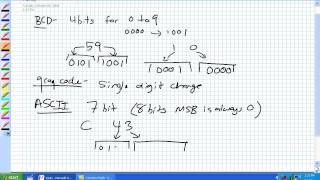 BCD- 4bits for 0 to 9
0000 → 1001
59 1 0
0101 1001 0001 0000
gray code- Single digit change
ASCII 7 bit (8bits MSB is always 0)
C 43
01-